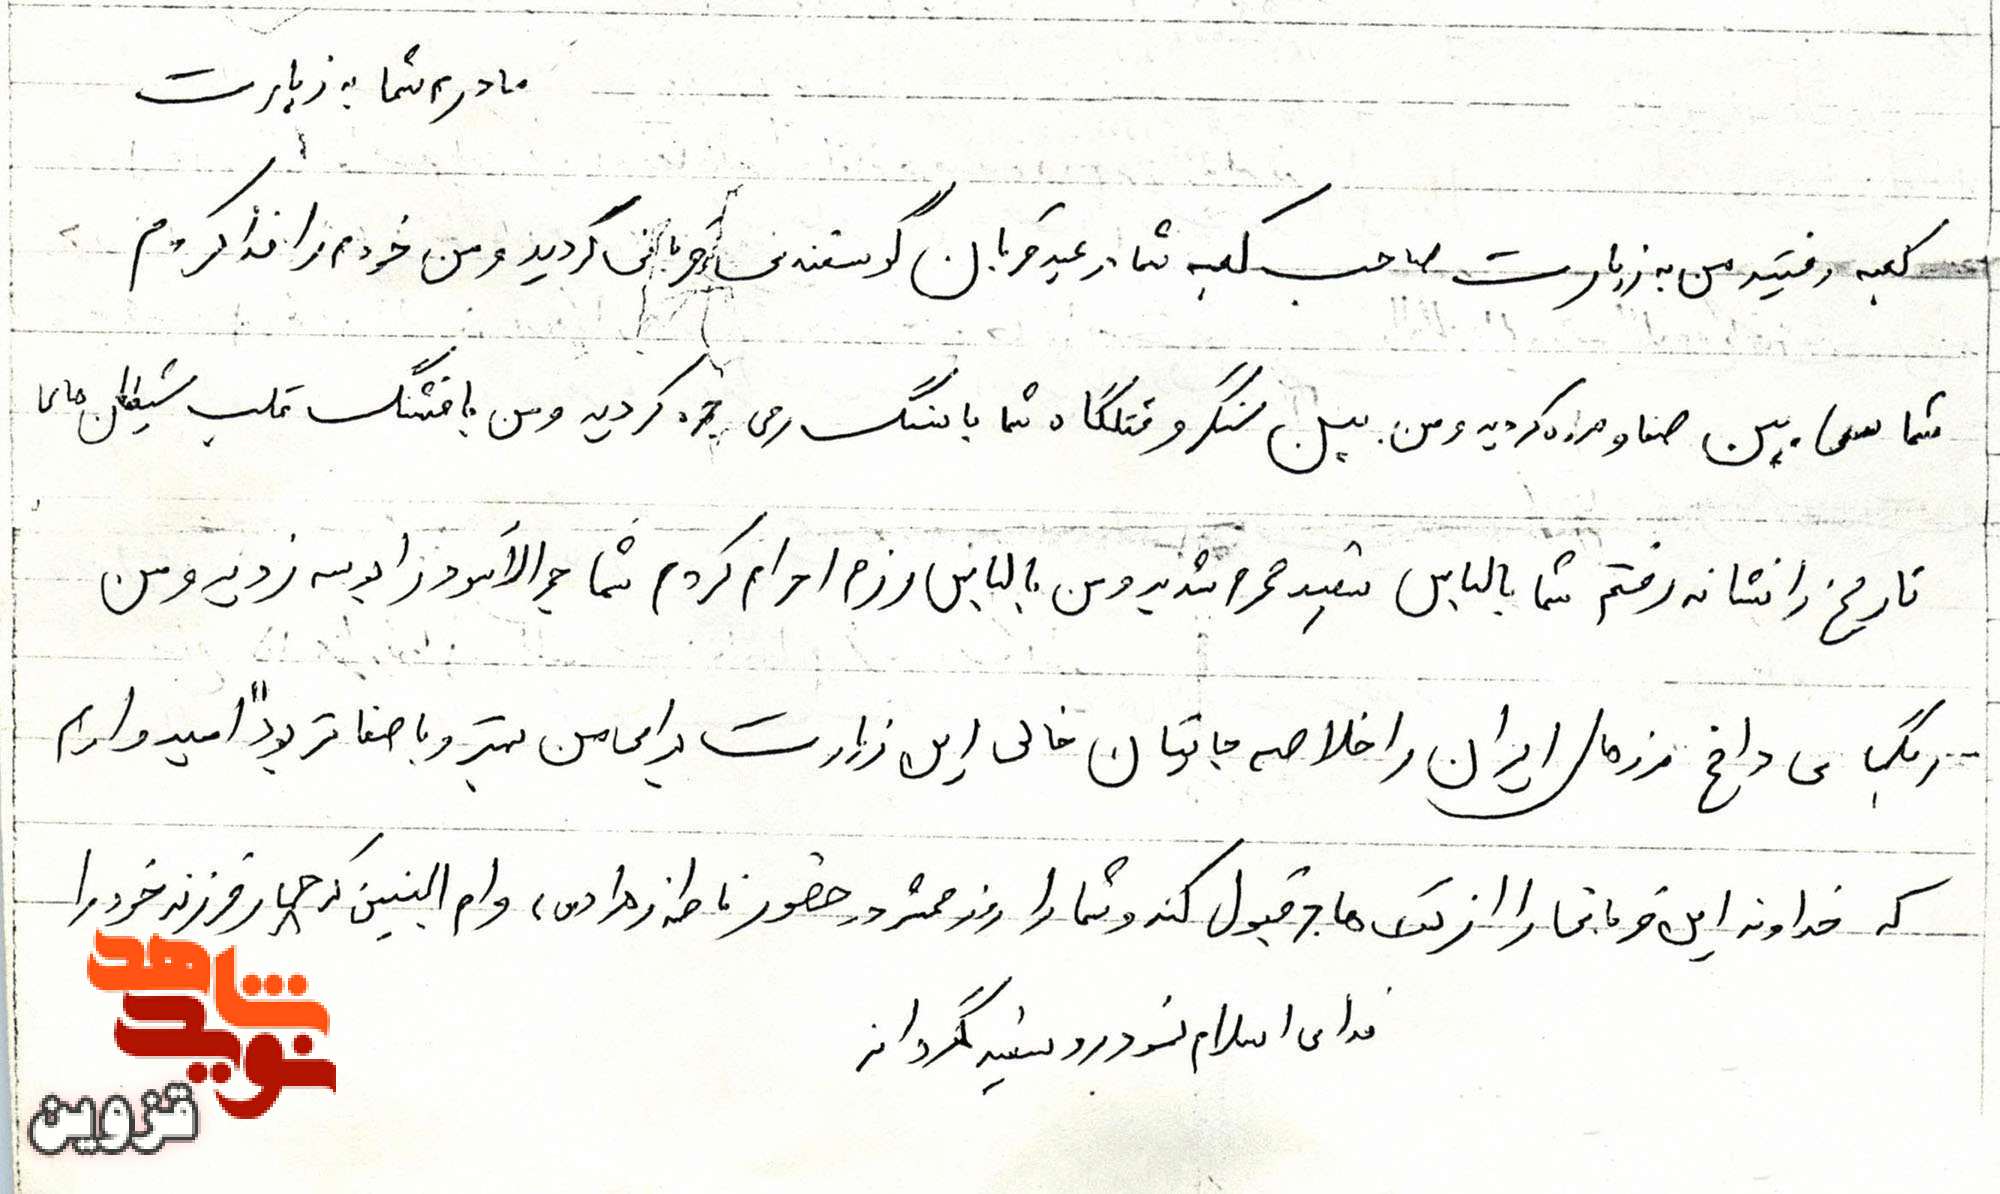 مادرم شما به زیارت
کعبه رفتید من به زیارت صاحب کعبه شما در عید قربان گوسفندی قربانی کردید و من خودم را فدا کردم
شما سعی بین صفا و مروه کردید و من بین سنگر و قتلگاه شما با سنگ رمی جمره کردید و من با فشنگ قلب شیطان های
تاریخ را نشانه رفتم شما با لباس سفید محرم شدید و من با لباس رزم احرام کردم شما حجرالاسود را بوسه زدید و من
ریگهای داغ مرزهای ایران را خلاصه جایتان خالی این زیارت برای من بهتر و با صفاتر بود" امیدوارم
که خداوند این قربانی را از تک حاجر قبول کند و شما را روز محشر در حضور فاطمه زهرا (س) و ام البنین که چهار فرزند خود را
فدای اسلام نمود رو سفید گرداند
شاهد
نوید
قزوین